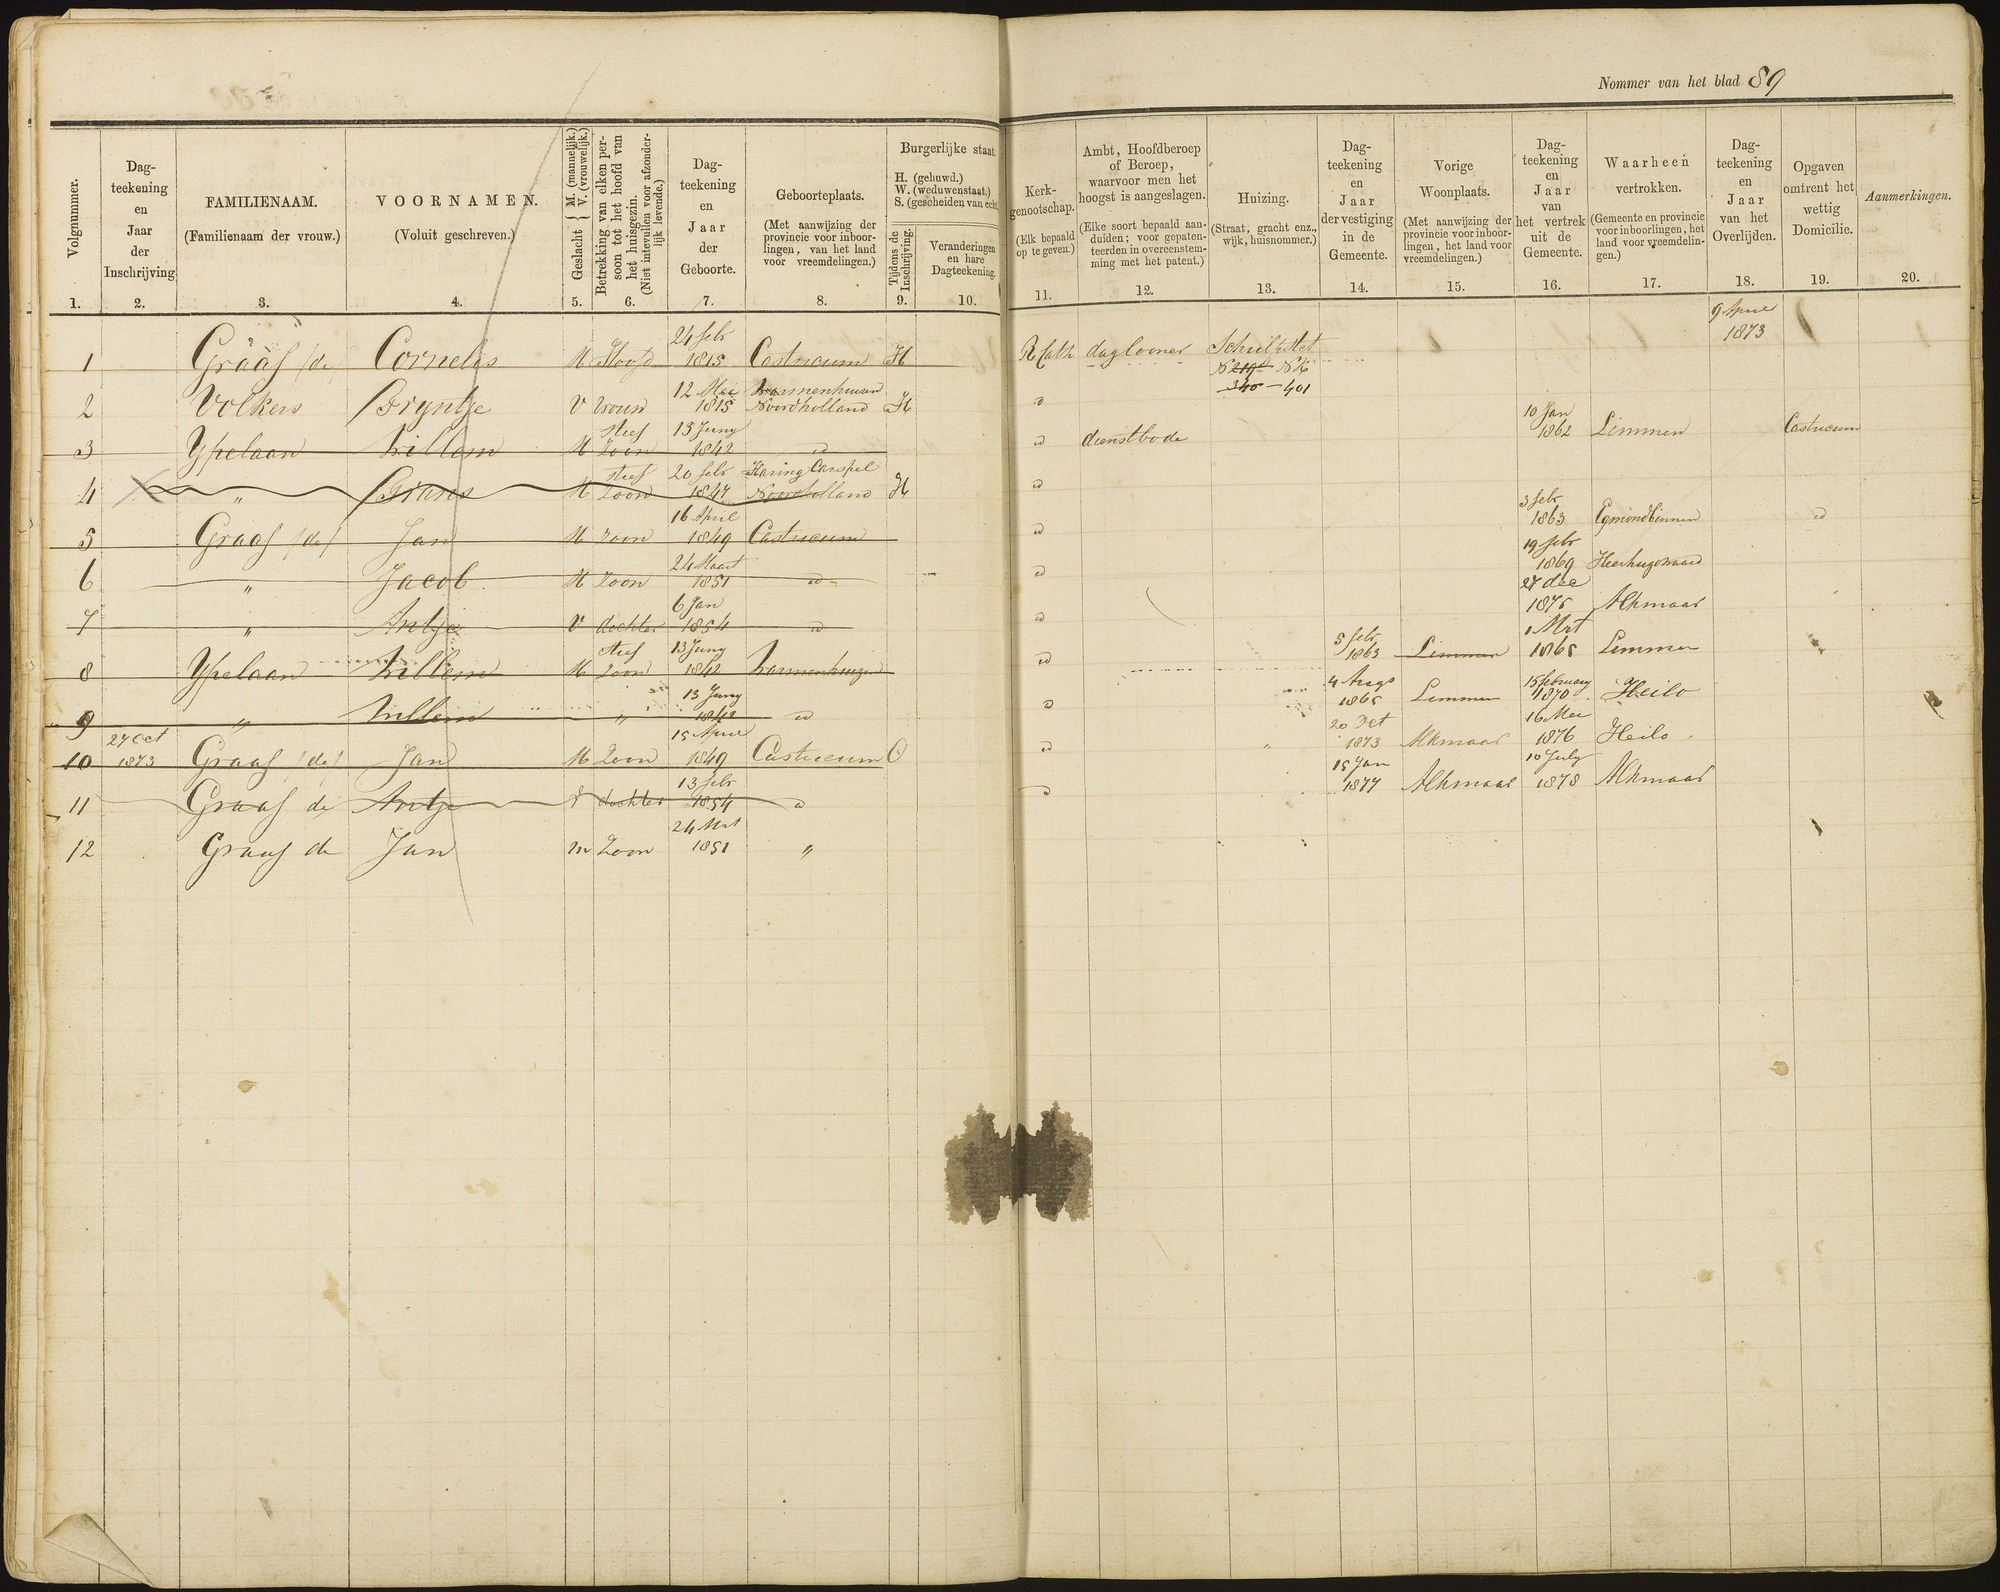 Nommer van het blad 89
Volgnummer.
Dag-
teekening
en
Jaar
der
Inschrijving
FAMILIENAAM.
(Familienaam der vrouw.)
VOORNAMEN.
(Voluit geschreven.)
Geslacht { M. (mannelijk.) V. (vrouwelijk.)
Betrekking van elken per-
soon tot het hoofd van
het huisgezin.
(Niet intevullen voor afzonder-
lijk levende.)
Dag-
teekening
en
Jaar
der
Geboorte.
Geboorteplaats.
(Met aanwijzing der
provincie voor inboor-
lingen, van het land
voor vreemdelingen.)
Burgerlijke staat.
H. (gehuwd.)
W. (weduwenstaat.)
S. (gescheiden van echt
Tijdens de
Inschrijving.
Veranderingen
en hare
Dagteekening.
Kerk-
genootschap.
(Elk bepaald
op te geven.)
Ambt, Hoofdberoep
of Beroep,
waarvoor men het
hoogst is aangeslagen.
(Elke soort bepaald aan-
duiden; voor gepaten-
teerden in overeenstem-
ming met het patent.)
Huizing.
(Straat, gracht enz.,
wijk, huisnommer.)
Dag-
teekening
en
Jaar
der vestiging
in de
Gemeente.
Vorige
Woonplaats.
(Met aanwijzing der
provincie voor inboor-
lingen, het land voor
vreemdelingen.)
Dag-
teekening
en
Jaar
van
het vertrek
uit de
Gemeente.
Waarheen
vertrokken.
(Gemeente en provincie
voor inboorlingen, het
land voor vreemdelin-
gen.)
Dag-
teekening
en
Jaar
van het
Overlijden.
Opgaven
omtrent het
wettig
Domicilie.
Aanmerkingen.
1. 2. 3. 4. 5. 6. 7. 8. 9. 10. 11. 12. 13. 14. 15. 16. 17. 18. 19. 20.
24 febr 9 April
1 Graaf (de) Cornelis M Hoofd 1815 Castricum H R Cath daglooner 1873
N 219 N
340 - 401
12 Mei
2 Volkers Gryntje V Vrouw 1815 Noordholland H
stief 13 Juny 10 Jan
3 Ypelaan Willem M Zoon 1842 dienstbode 1862 Limmen Castricum
stief 20 febr Haring Carspel
4 " M Zoon 1847 Noordholland H
16 April 3 febr
5 Graaf (de) Jan M Zoon 1849 Castricum 1863 Egmondbinnen
24 Maart 19 febr
6 " Jacob M Zoon 1851 1869 Heerhugowaard
6 Jan 27 dec
7 " Antje V dochter 1854 1875 Alkmaar
stief 13 Juny 5 febr 1 Mrt
8 Ypelaan Willem M Zoon 1842 1863 Limmen 1865 Limmen
13 Juny 15 february
9 " Willem " 1842 1865 Limmen 1870 Heilo
27 Oct 15 April 20 Oct 16 Mei
10 1873 Graaf (de) Jan M Zoon 1849 Castricum O 1873 Alkmaar 1876 Heilo
13 febr 15 Jan 10 July
11 Graaf de Antje V dochter 1854 1877 Alkmaar 1878 Alkmaar
24 Mrt
12 Graaf de Jan m Zoon 1851 "